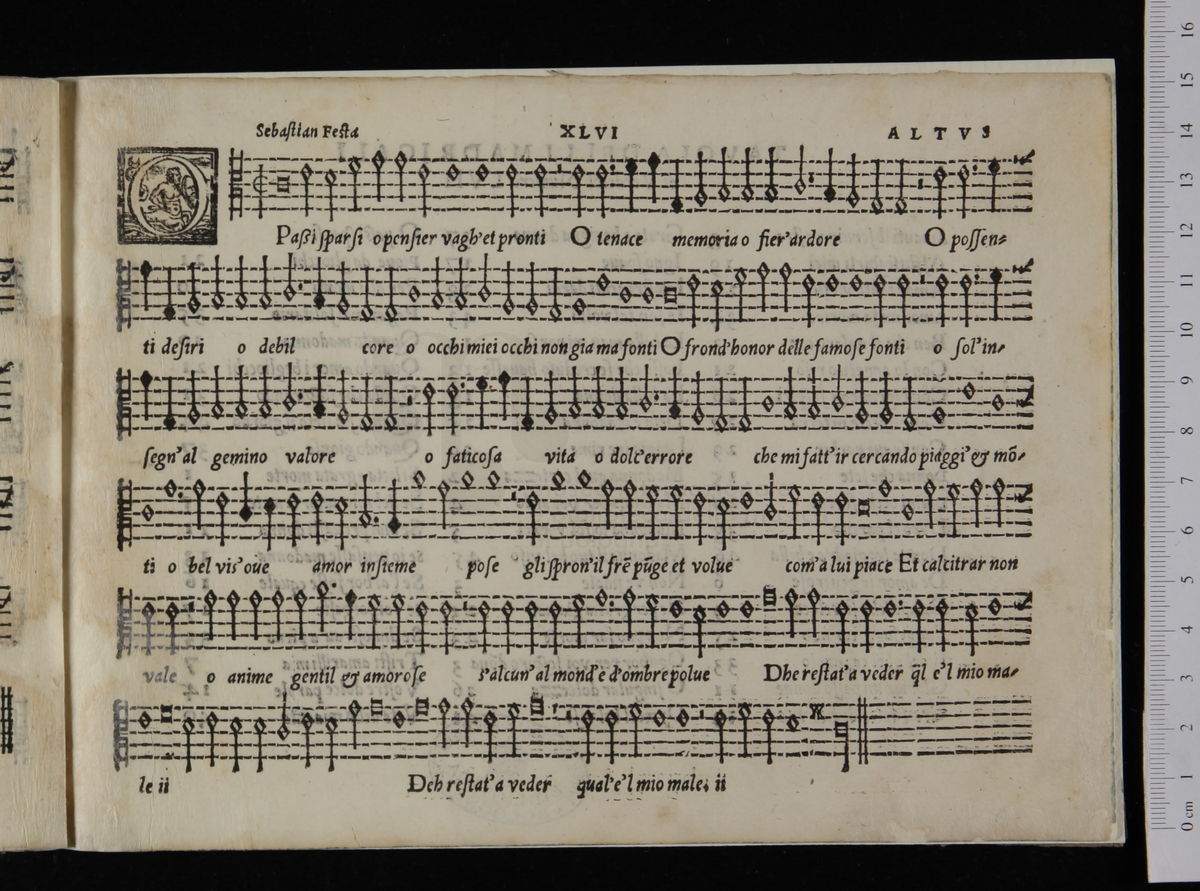 Sebastian Festa XLVI ALTVS
O Paßi sparsi o pensier vagh'et pronti O tenace memoria o fier'ardore O possen-
ti desiri o debil core o occhi miei occhi non gia ma fonti O frond'honor delle famose fonti o sol'in-
segn'al gemino valore o faticosa vita o dolc'errore che mi fatt'ir cercando piaggi'& mõ-
ti o bel vis'oue amor insieme pose gli spron'il frẽ pũge et volue com'a lui piace Et calcitrar non
vale o anime gentil & amorose s'alcun'al mond'e d'ombre polue Dhe restat'a veder q̃l e'l mio ma-
le ii Deh restat'a veder qual'e'l mio male. ii
16
15
14
13
12
11
10
9
8
7
6
5
4
3
2
1
0 cm